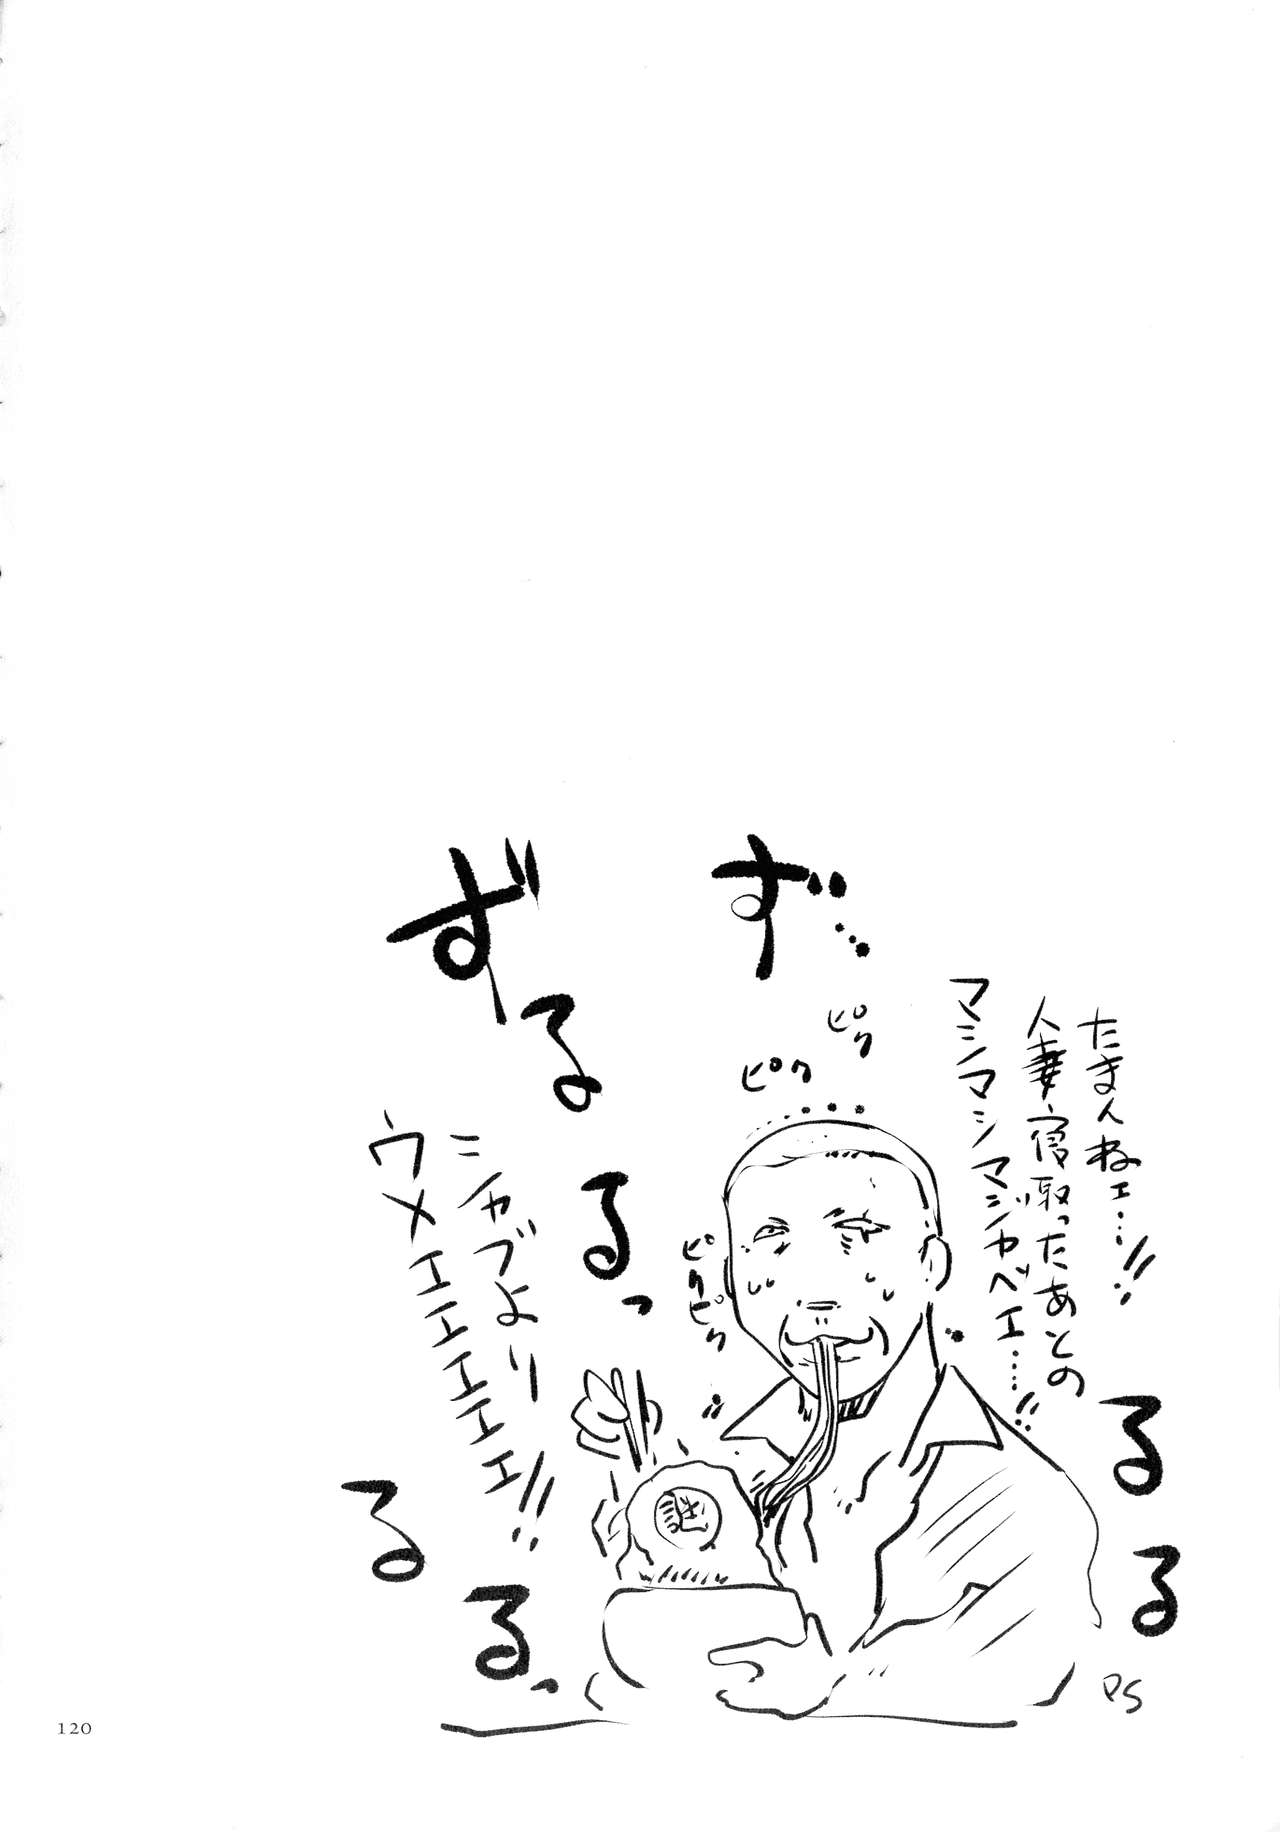 ず…
ずるるっ
ピク
ピク
ピクピク
たまんねェ…!!
人妻寝取ったあとの
マシマシマジヤベエ…!!
シャブより
ウメエエエエエエ!!
るる
るるっ
PS
120